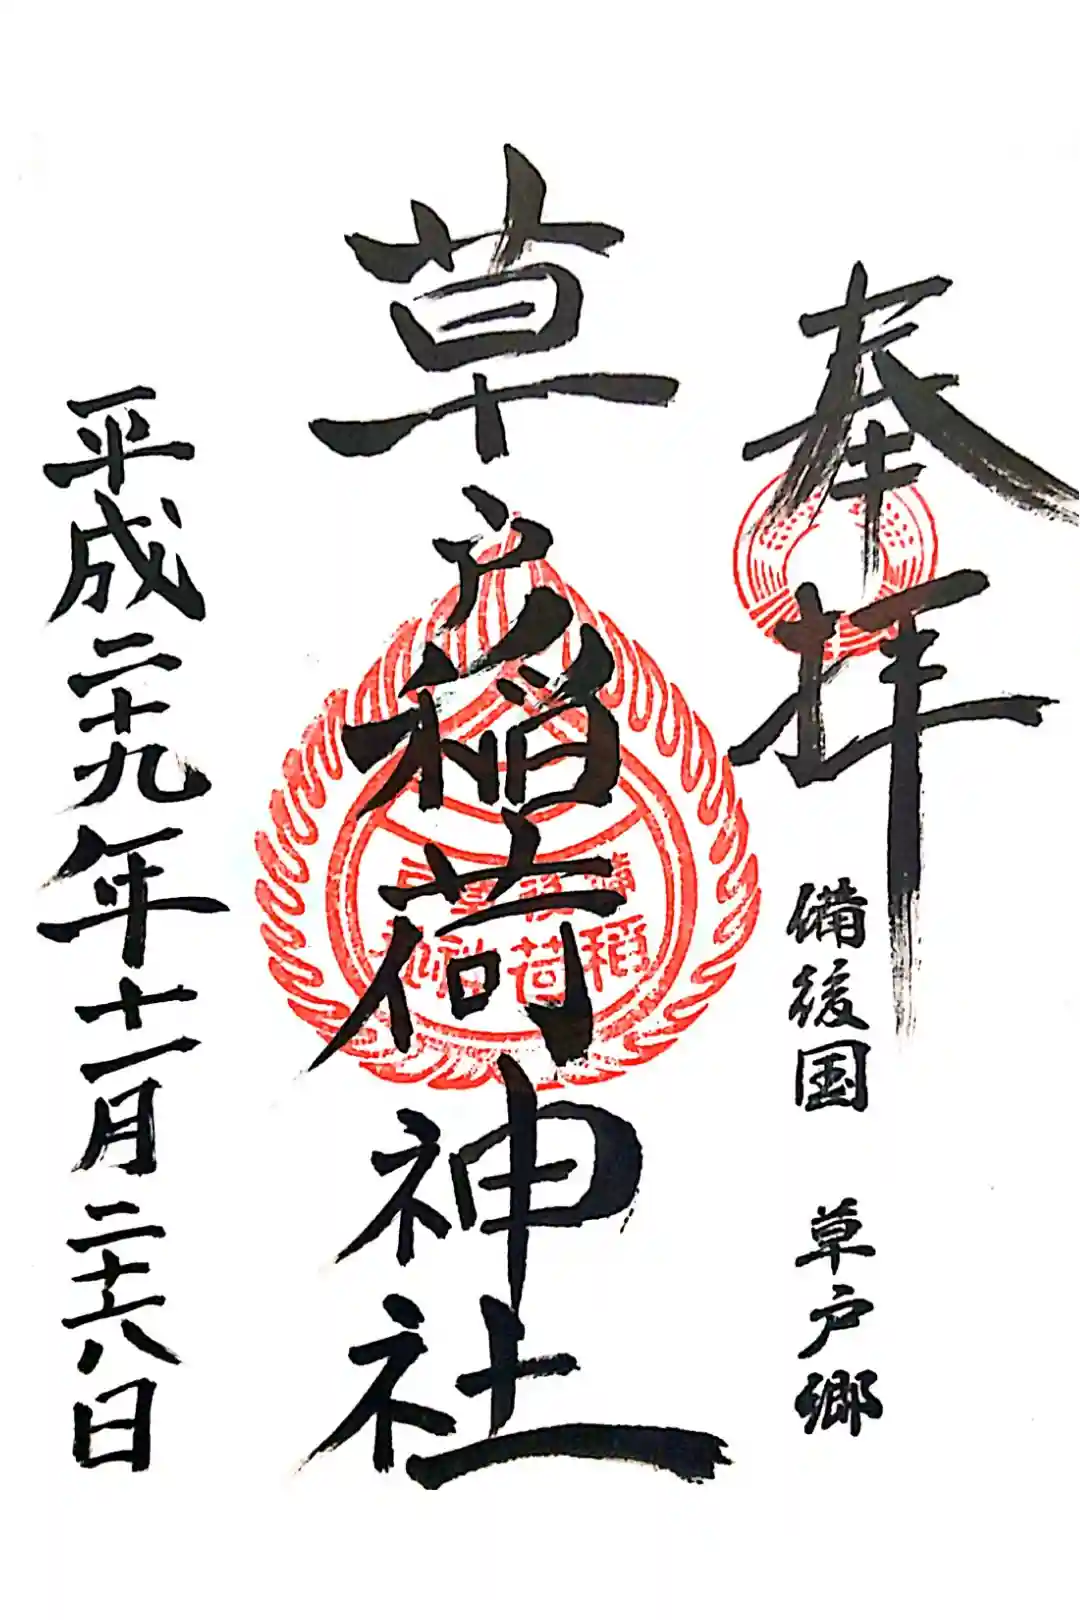 奉拝
備後国　草戸郷
草戸稲荷神社
稲荷神社
平成二十九年十一月二十六日